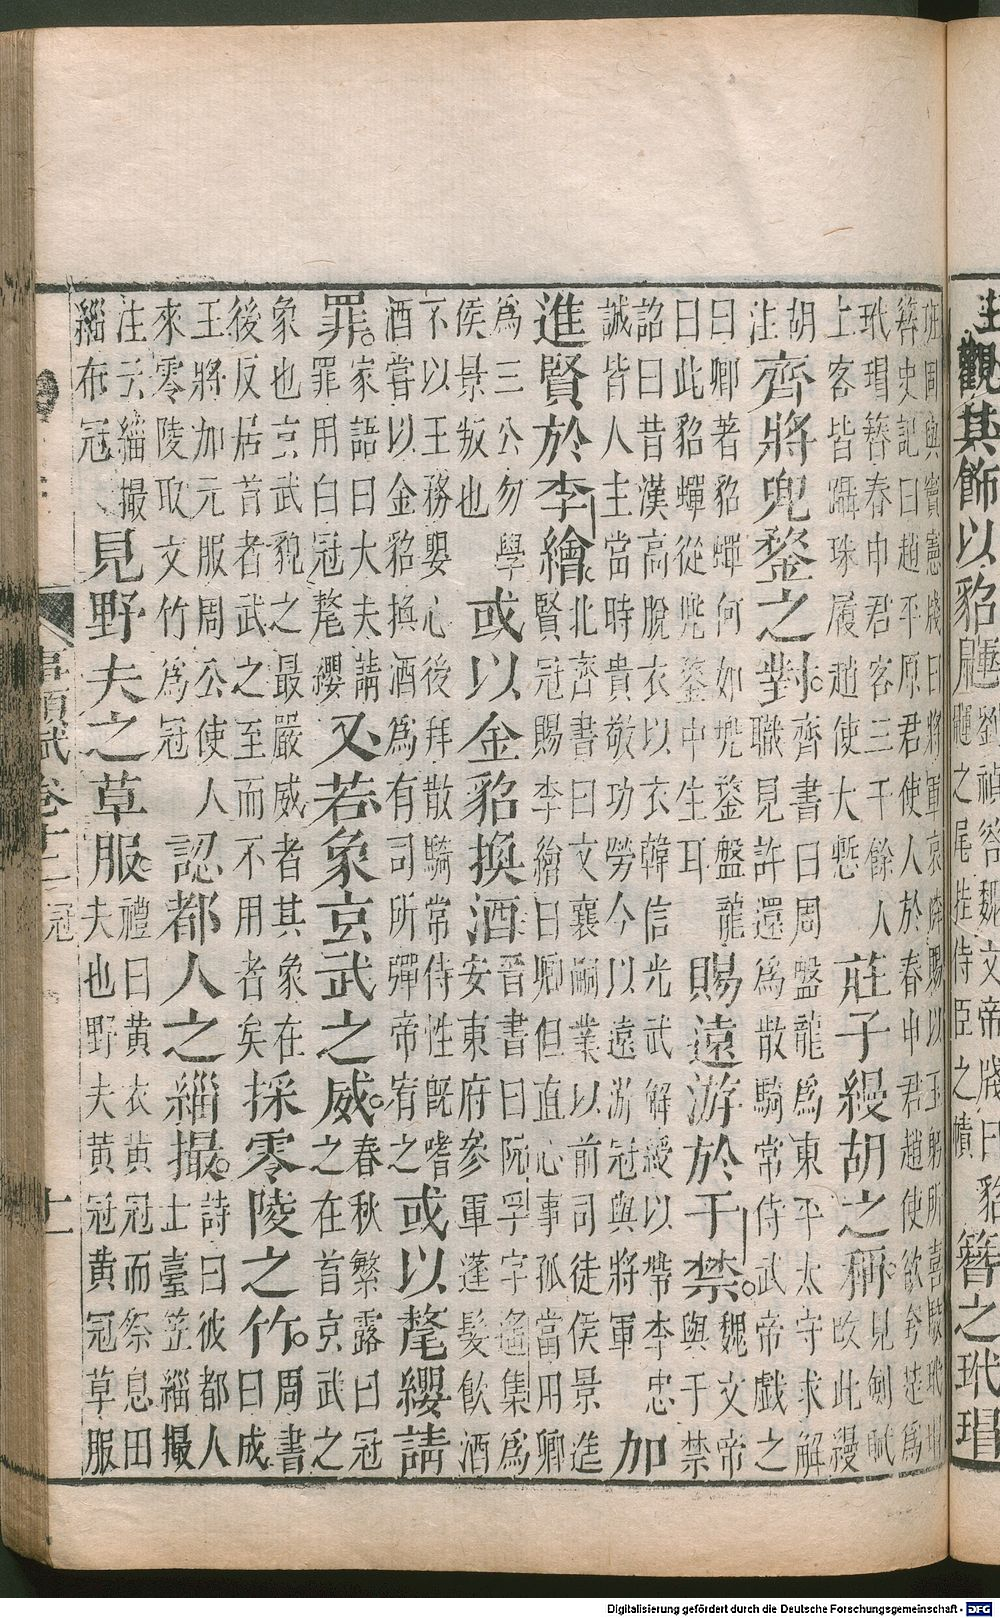 注觀其飾以貂劉禎答魏文帝牋曰貂之尾挂侍臣之幘簪之玳瑁
班固與竇憲牋曰將軍哀憐賜以玉躬所喜駮玳瑁簪史記曰趙平原君使人於春申君趙使欲夸楚為
玳瑁簪春申君客三千餘人上客皆躡珠履趙使大慙莊子縵胡之稱見劍賦吹此縵
胡注齊將兜鍪之對齊書曰周盤龍為東平太守求解職見許還為散騎常侍武帝戲之
曰卿著貂蟬何如兜鍪盤龍曰此貂蟬從兜鍪中生耳賜遠游於于禁魏文帝與于禁
詔曰昔漢高脫衣以衣韓信光武解綬以帶李忠誠皆人主當時貴敬功勞今以遠游冠與將軍加
進賢於李繪北齊書曰文襄嗣業以前司徒侯景進賢冠賜李繪曰卿但直心事孤當用卿
為三公勿學侯景叛也或以金貂換酒晉書曰阮孚字遙集為安東府參軍蓬髮飲酒
不以王務嬰心後拜散騎常侍性既嗜酒嘗以金貂換酒為有司所彈帝宥之或以氂纓請
罪家語曰大夫請罪用白冠氂纓又若象玄武之威春秋繁露曰冠之在首玄武之
象也玄武貌之最嚴威者其象在後反居首者武之至而不用者矣採零陵之竹周書曰成
王將加元服周公使人來零陵取文竹為冠認都人之緇撮詩曰彼都人士臺笠緇撮
注云緇撮緇布冠見野夫之草服禮曰黃衣黃冠而祭息田夫也野夫黃冠黃冠草服
事類賦卷十二 冠 十一
Digitalisierung gefördert durch die Deutsche Forschungsgemeinschaft - DFG